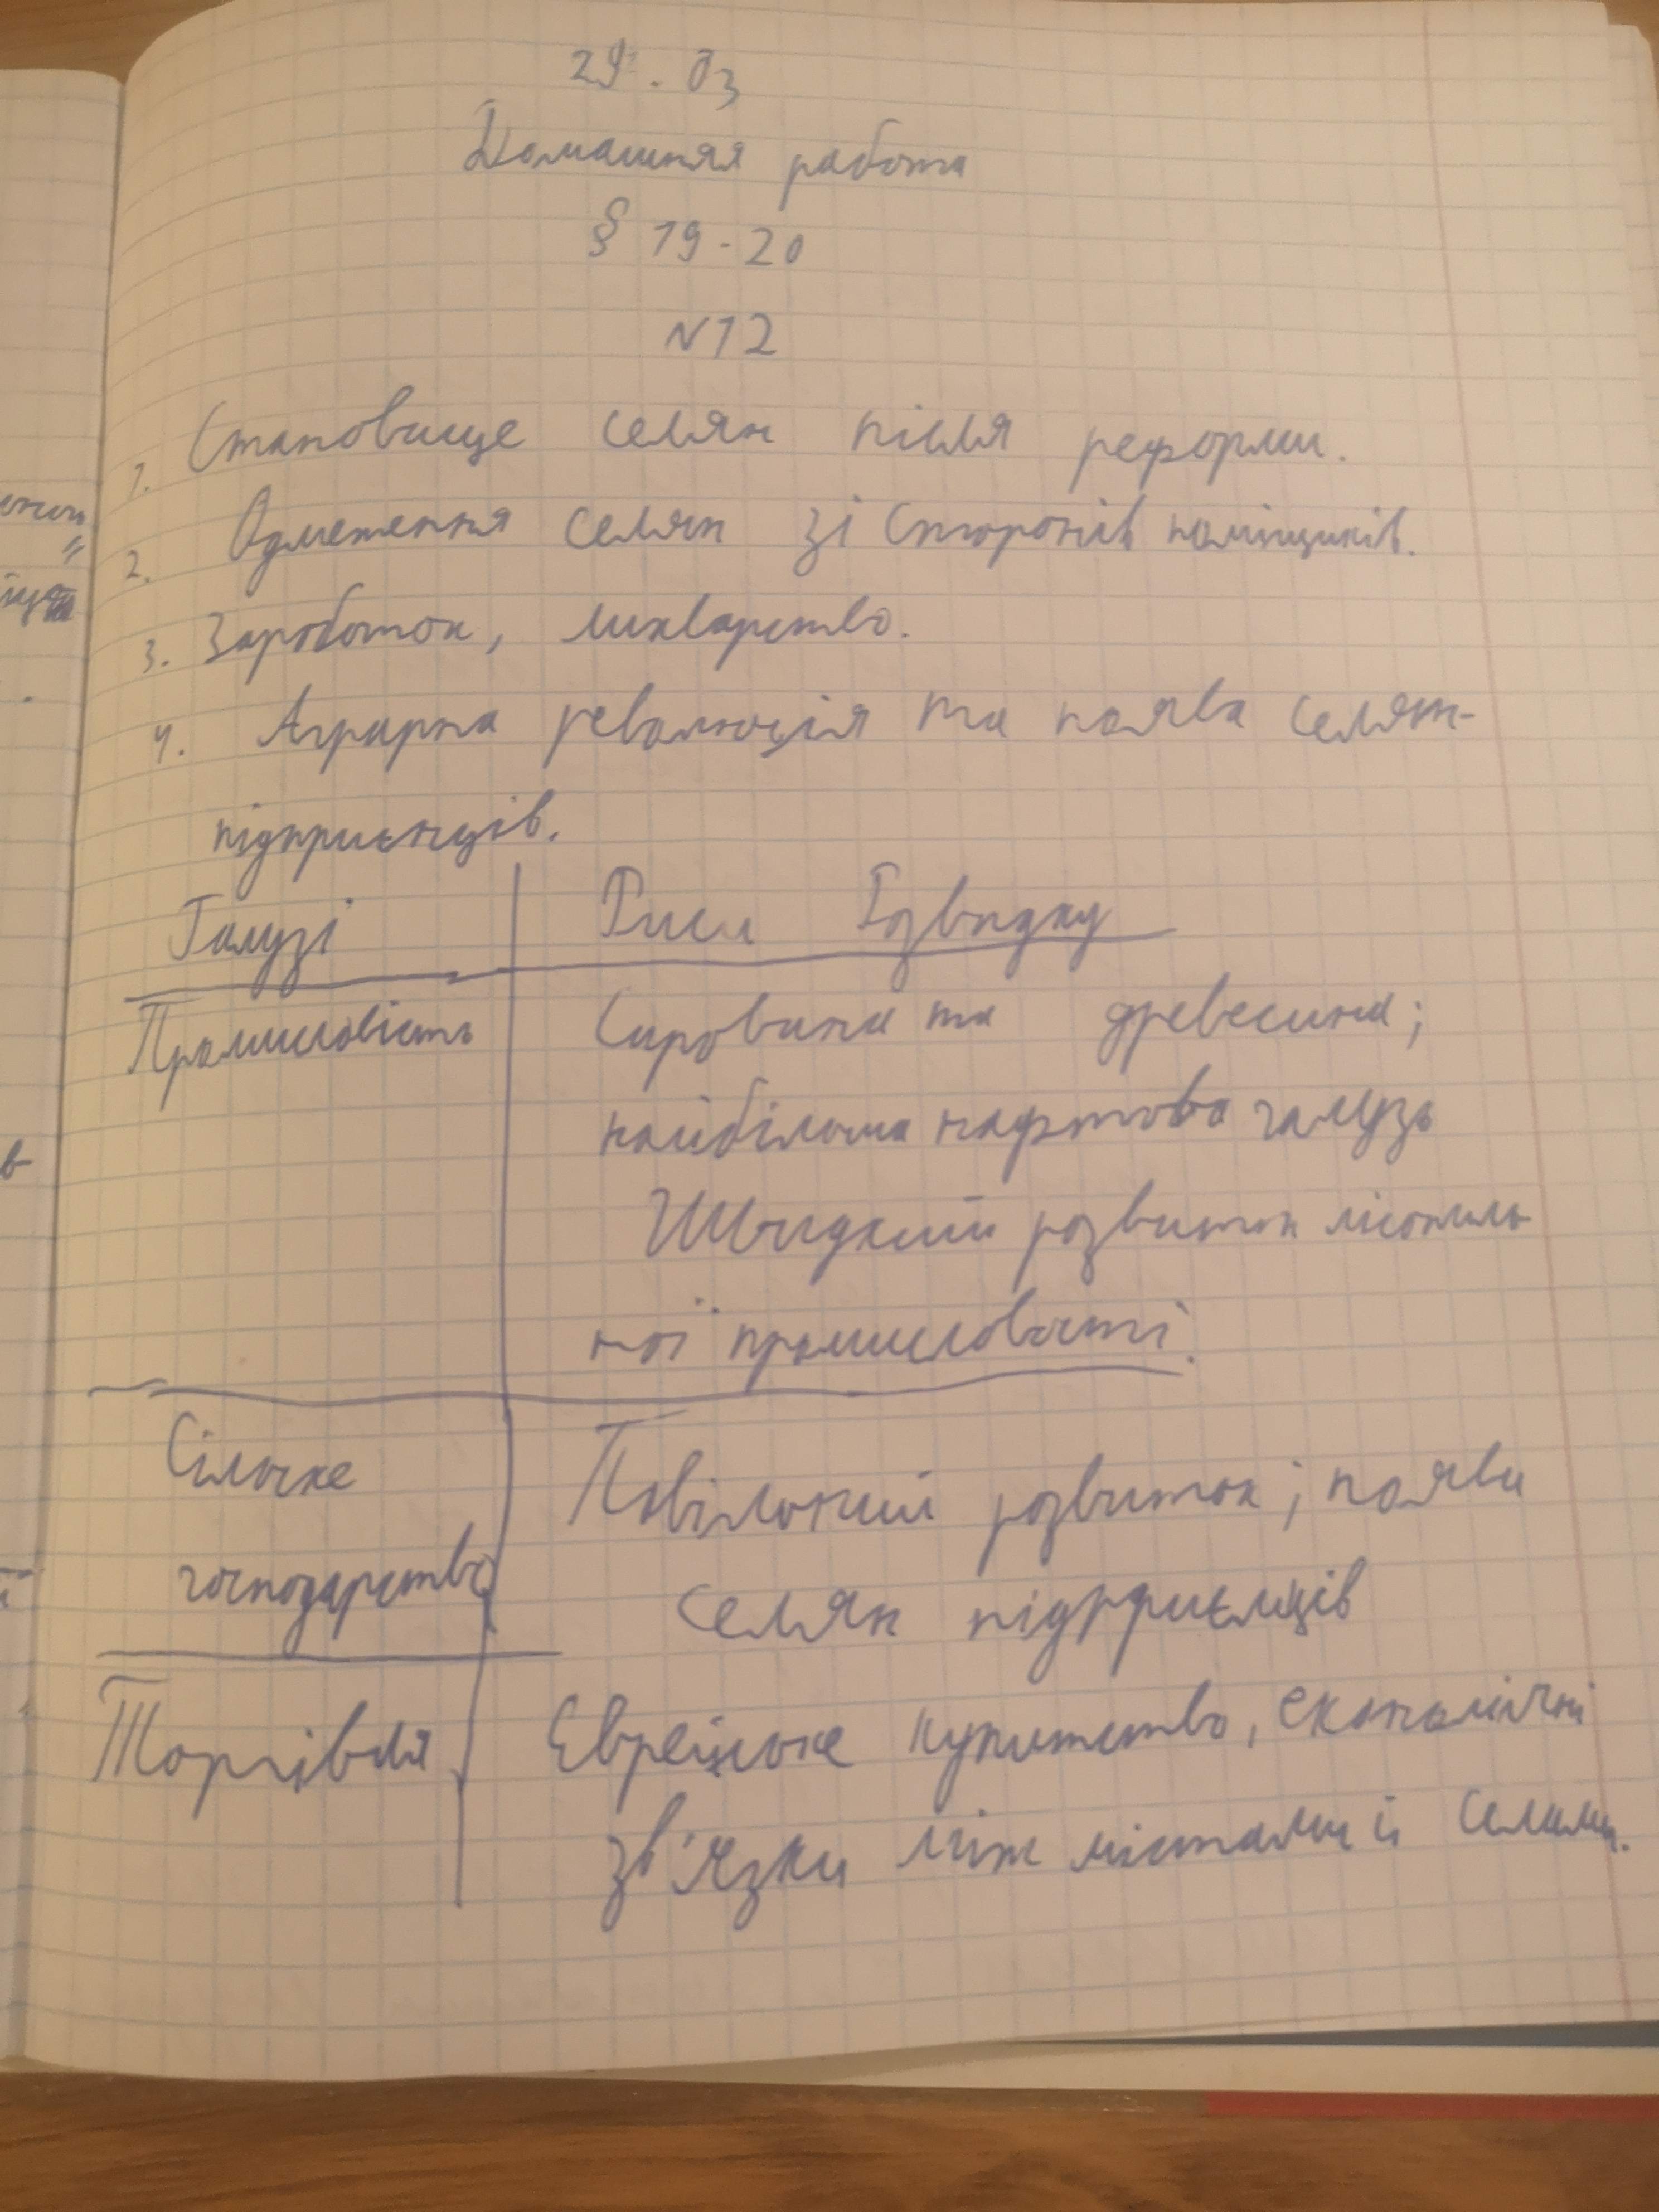 29.03
Домашняя работа
§ 19-20
N12
1. Становище селян після реформи.
2. Обмеження селян зі сторонів поміщиків.
3. Заробіток, лихварство.
4. Аграрна революція та поява селян-
підприємців.
Галузі Риси Розвидку
Промисловість Сировина та древесина;
найбільша нафтова галузь
Швидкий розвиток лісопиль
ної промисловості.
Сільське Повільний розвиток; поява
господарство селян підприємців
Торгівля Єврейське купитство, економічні
зв'язки між містами й селами.